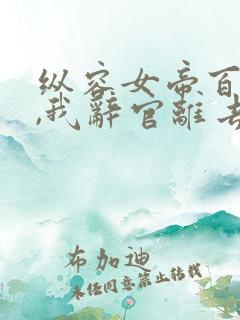 纵容女帝百
,我辞官离去
布加迪
未经同意禁止转载